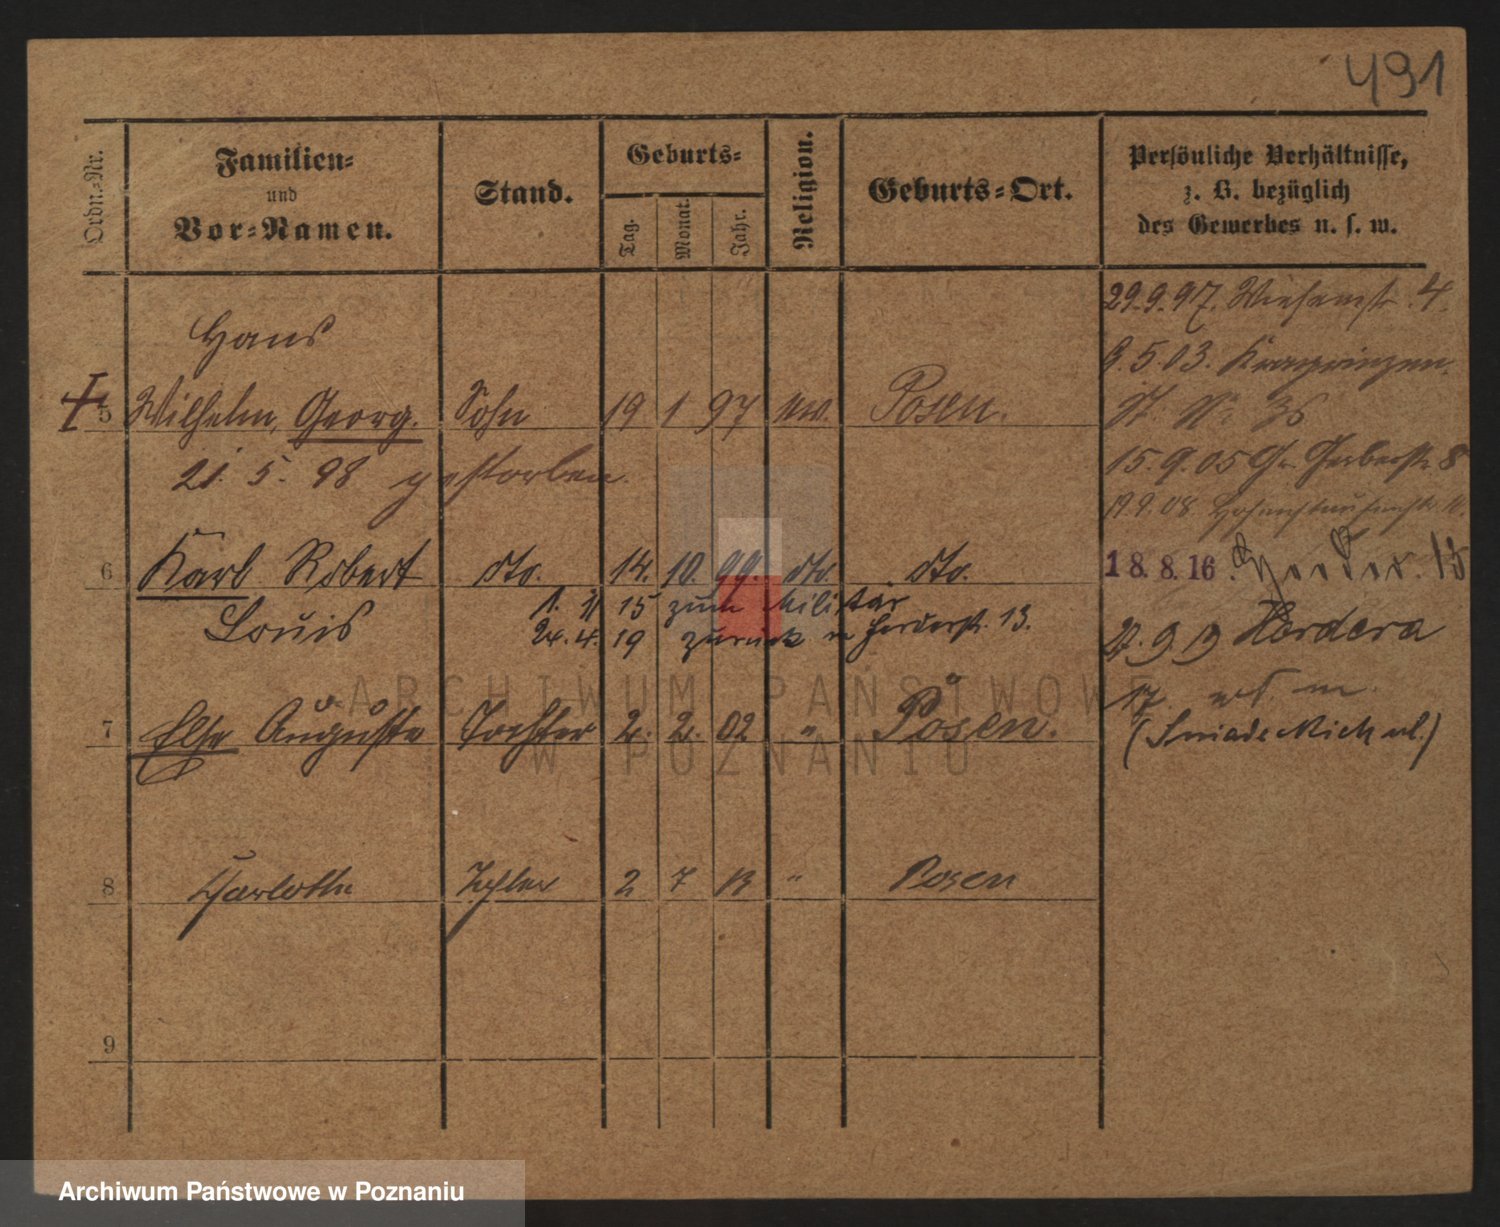 491
Ordn.=Nr.
Familien=
und
Vor=Namen.
Stand.
Geburts=
Tag.
Monat.
Jahr.
Religion.
Geburts=Ort.
Persönliche Verhältnisse,
z. B. bezüglich
des Gewerbes u. s. w.
29.9.97. Wiesenstr. 4.
Hans
9.5.03. Kronprinzen
5 Wilhelm, Georg. Sohn 19 1 97 ev. Posen.
21. 5. 98 gestorben.
15.9.05 Gr. Gerberstr. 8
19.9.08 Hohenstaufenstr.
6 Karl Robert dto. 14. 10. 99. dto. dto.
18.8.16. 13
Louis
1. 11 15 zum Militär
24. 4. 19 zurück n Herderstr. 13.
Herdera
7 Else Auguste Tochter 2. 2. 02 " Posen.
(Sniadeckich ul.)
8 Charlotte Tochter 2 7 13 " Posen
9
ARCHIWUM PAŃSTWOWE
W POZNANIU
Archiwum Państwowe w Poznaniu